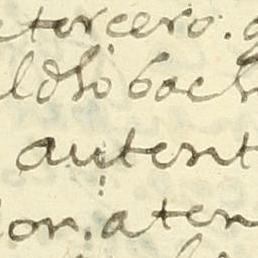 etercero.
ldho bach
autent
or. aten